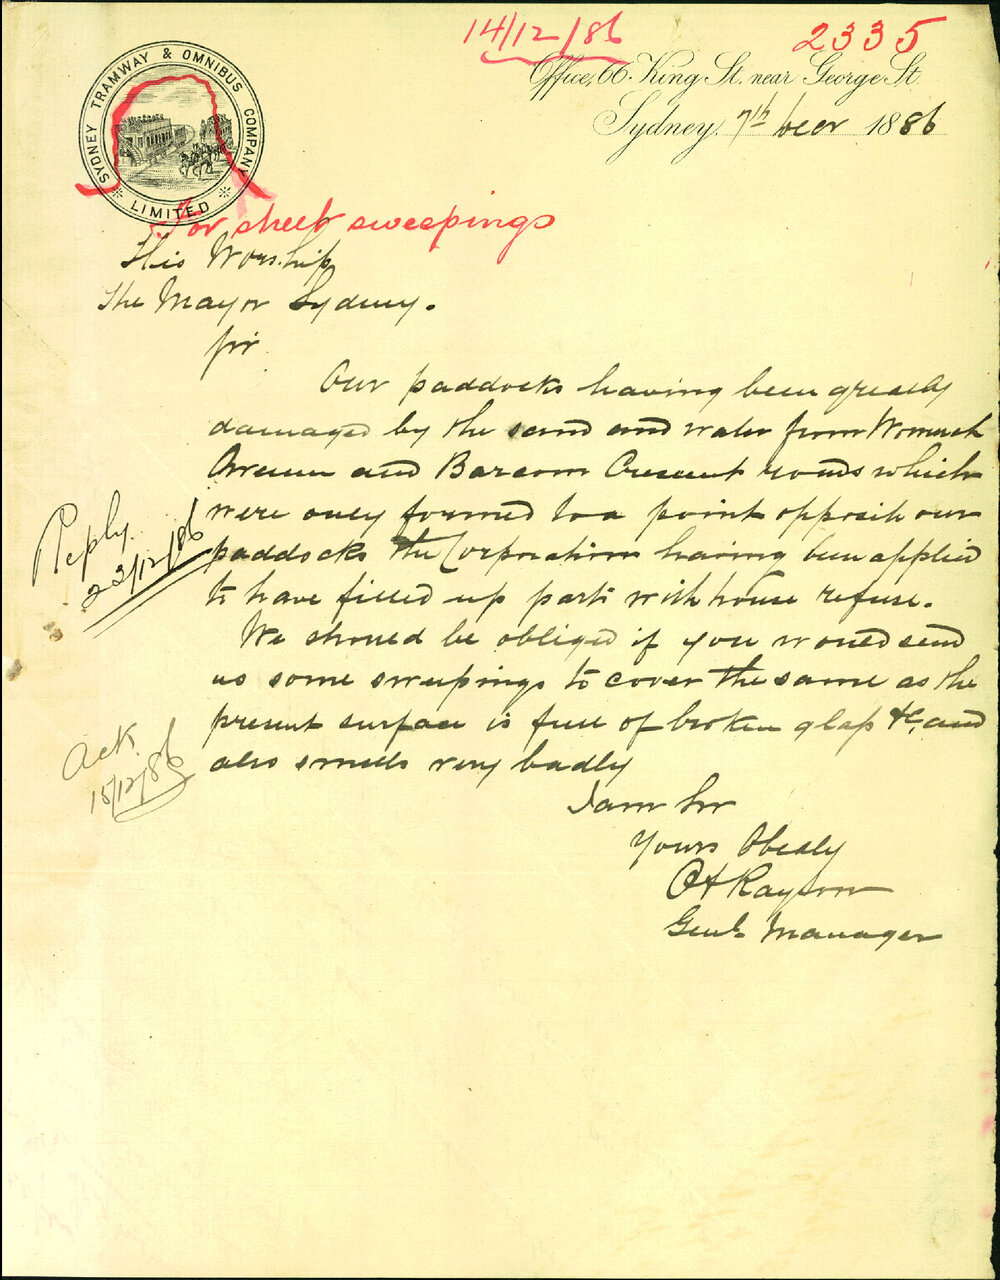 14/12/86
2335
SYDNEY TRAMWAY & OMNIBUS COMPANY
LIMITED
Office, 66, King St. near George St.
Sydney, 7th Decr 1886
For street sweepings
His Worship
The Mayor Sydney.
Sir
Our paddocks having been greatly
damaged by the sand and water from Womerah
Avenue and Barcom Crescent roads which
were only formed to a point opposite our
paddocks the Corporation having been applied
to have filled up parts with house refuse.
We should be obliged if you would send
us some sweepings to cover the same as the
present surface is full of broken glass &c, and
also smells very badly
I am Sir
Yours Obedly
Genl Manager
Reply.
22/12/86
Ack
15/12/86